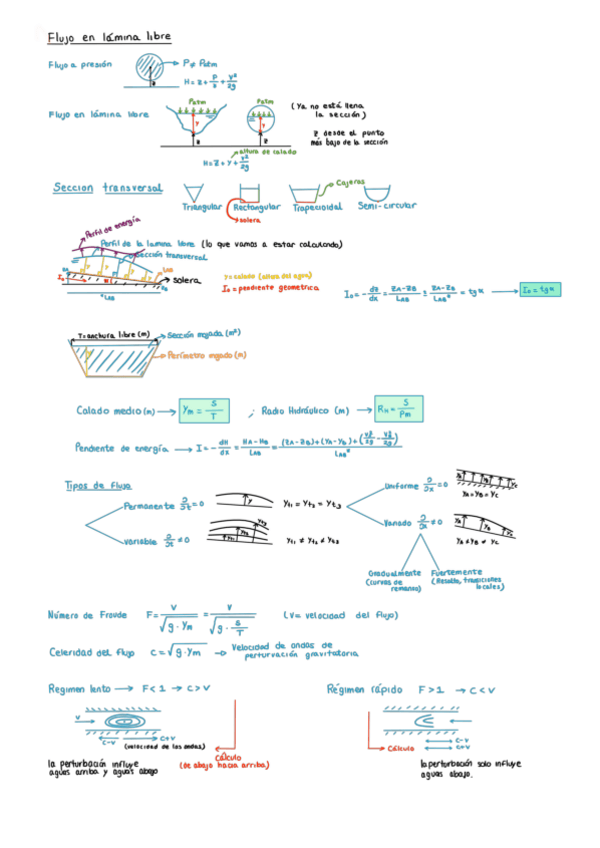 Flujo en lámina libre
Flujo a presión
P ≠ Patm
H = z + P/γ + v²/2g
Flujo en lámina libre
Patm
Patm
(Ya no está llena
la sección)
z desde el punto
más bajo de la sección
altura de calado
H = z + y + v²/2g
Seccion transversal
Cajeros
Triangular
Rectangular
Trapezoidal
Semi-circular
solera
Perfil de energía
Perfil de la lamina libre (lo que vamos a estar calculando)
Sección transversal
solera
y = calado (altura del agua)
I₀ = pendiente geometrica
I₀ = - dz/dx = (zA-zB)/LAB ≅ (zA-zB)/LAB* = tg α → I₀ = tg α
T: anchura libre (m)
Sección mojada (m²)
Perímetro mojado (m)
Calado medio (m) → Ym = S/T ; Radio Hidráulico (m) → RH = S/Pm
Pendiente de energía → I = - dH/dx = (HA - HB)/LAB = ((zA-zB)+(YA-YB)+(vA²/2g - vB²/2g))/LAB*
Tipos de flujo
Permanente ∂/∂t = 0
yt1 = yt2 = yt3
Variable ∂/∂t ≠ 0
yt1 ≠ yt2 ≠ yt3
Uniforme ∂/∂x = 0
YA = YB = YC
Variado ∂/∂x ≠ 0
YA ≠ YB ≠ YC
Gradualmente
(curvas de
remanso)
Fuertemente
(Resalto, transiciones
locales)
Número de Froude F = v/√(g · Ym) = v/√(g · S/T) (v = velocidad del flujo)
Celeridad del flujo c = √(g · Ym) → Velocidad de ondas de
perturvación gravitatoria
Regimen lento → F < 1 → c > v
v
c-v
c+v
(velocidad de las ondas)
Cálculo
(de abajo hacia arriba)
la perturbación influye
aguas arriba y aguas abajo
Régimen rápido F > 1 → c < v
Cálculo
c-v
c+v
la perturbación solo influye
aguas abajo.